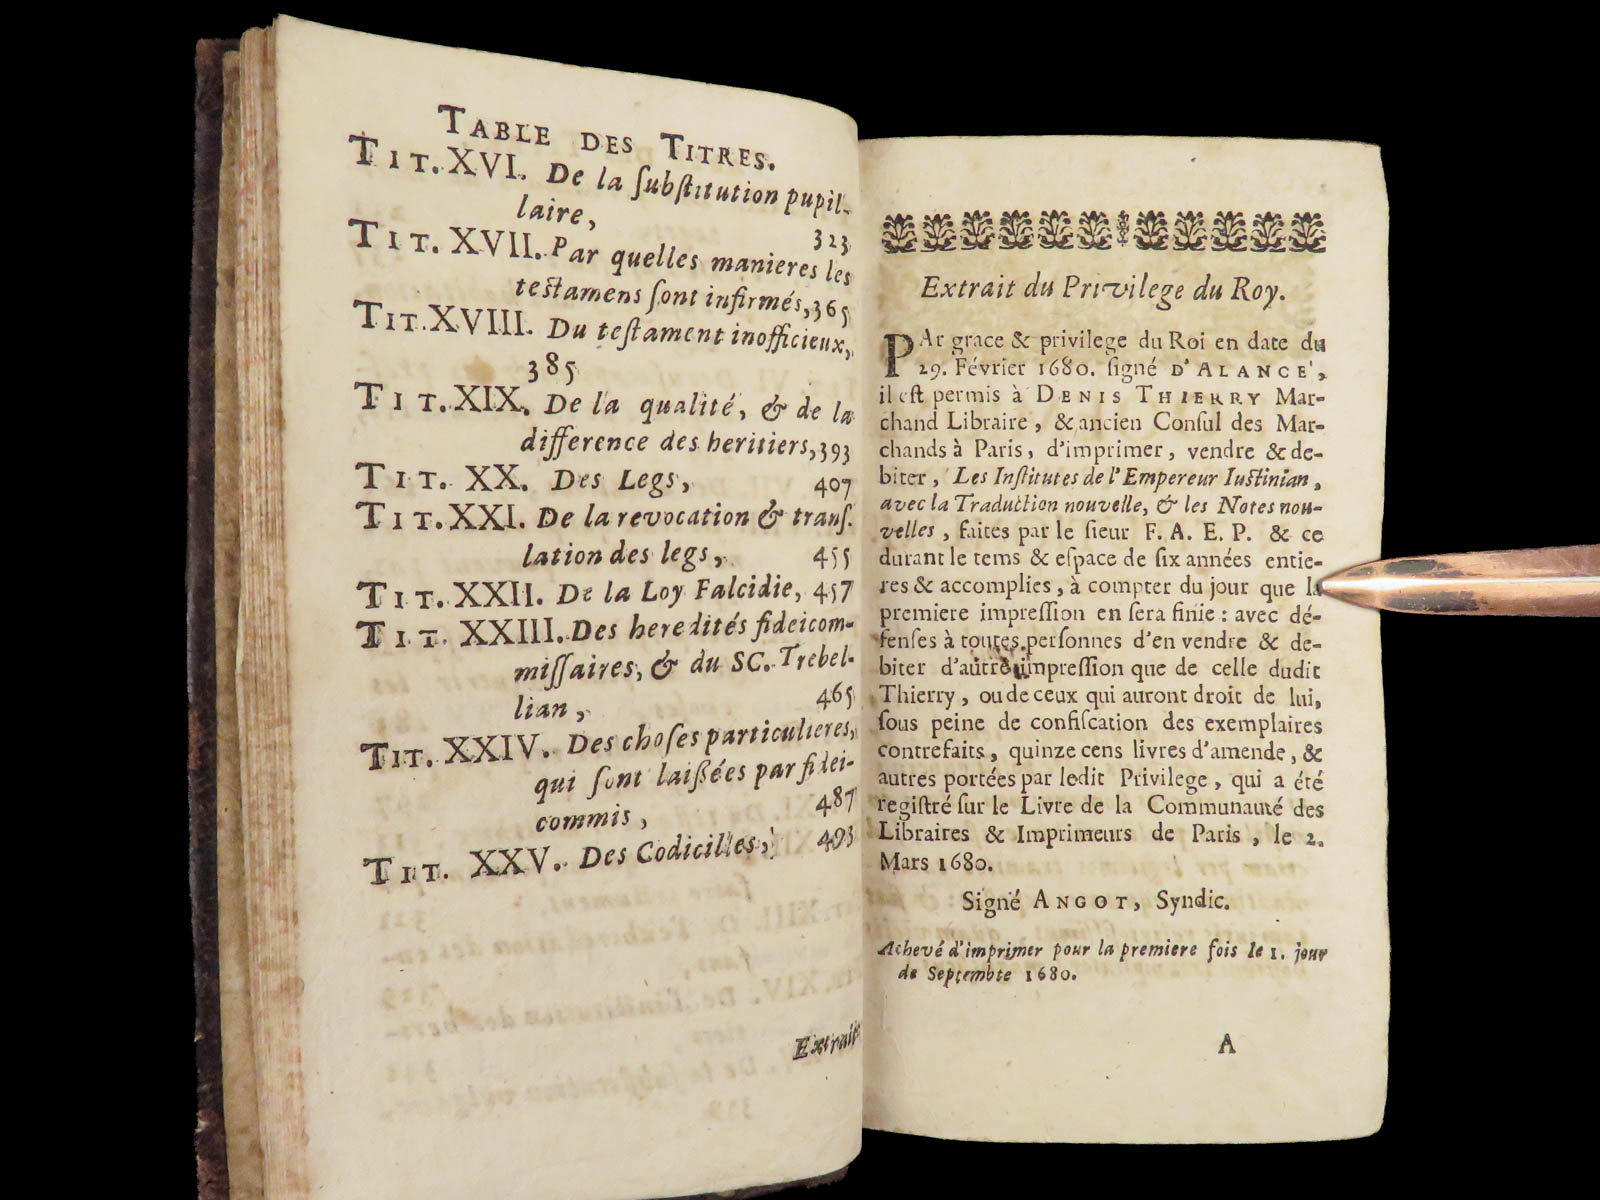 TABLE DES TITRES.
TIT. XVI. De la ſubſtitution pupil-
laire, 323
TIT. XVII. Par quelles manieres les
teſtamens ſont infirmés, 365
TIT. XVIII. Du teſtament inofficieux,
385
TIT. XIX. De la qualité, & de la
difference des heritiers, 393
TIT. XX. Des Legs, 407
TIT. XXI. De la revocation & tranſ-
lation des legs, 455
TIT. XXII. De la Loy Falcidie, 457
TIT. XXIII. Des heredités fideicom-
miſſaires, & du SC. Trebel-
lian, 465
TIT. XXIV. Des choſes particulieres,
qui ſont laiſſées par fidei-
commis, 487
TIT. XXV. Des Codicilles, 493
Extrait
Extrait du Privilege du Roy.
PAr grace & privilege du Roi en date du
29. Février 1680. ſigné D'ALANCE',
il eſt permis à DENIS THIERRY Mar-
chand Libraire, & ancien Conſul des Mar-
chands à Paris, d'imprimer, vendre & de-
biter, Les Inſtitutes de l'Empereur Iuſtinian,
avec la Traduction nouvelle, & les Notes nou-
velles, faites par le ſieur F. A. E. P. & ce
durant le tems & eſpace de ſix années entie-
res & accomplies, à compter du jour que la
premiere impreſſion en ſera finie : avec dé-
fenſes à toutes perſonnes d'en vendre & de-
biter d'autre impreſſion que de celle dudit
Thierry, ou de ceux qui auront droit de lui,
ſous peine de confiſcation des exemplaires
contrefaits, quinze cens livres d'amende, &
autres portées par ledit Privilege, qui a été
regiſtré ſur le Livre de la Communauté des
Libraires & Imprimeurs de Paris, le 2.
Mars 1680.
Signé ANGOT, Syndic.
Achevé d'imprimer pour la premiere fois le 1. jour
de Septembre 1680.
A